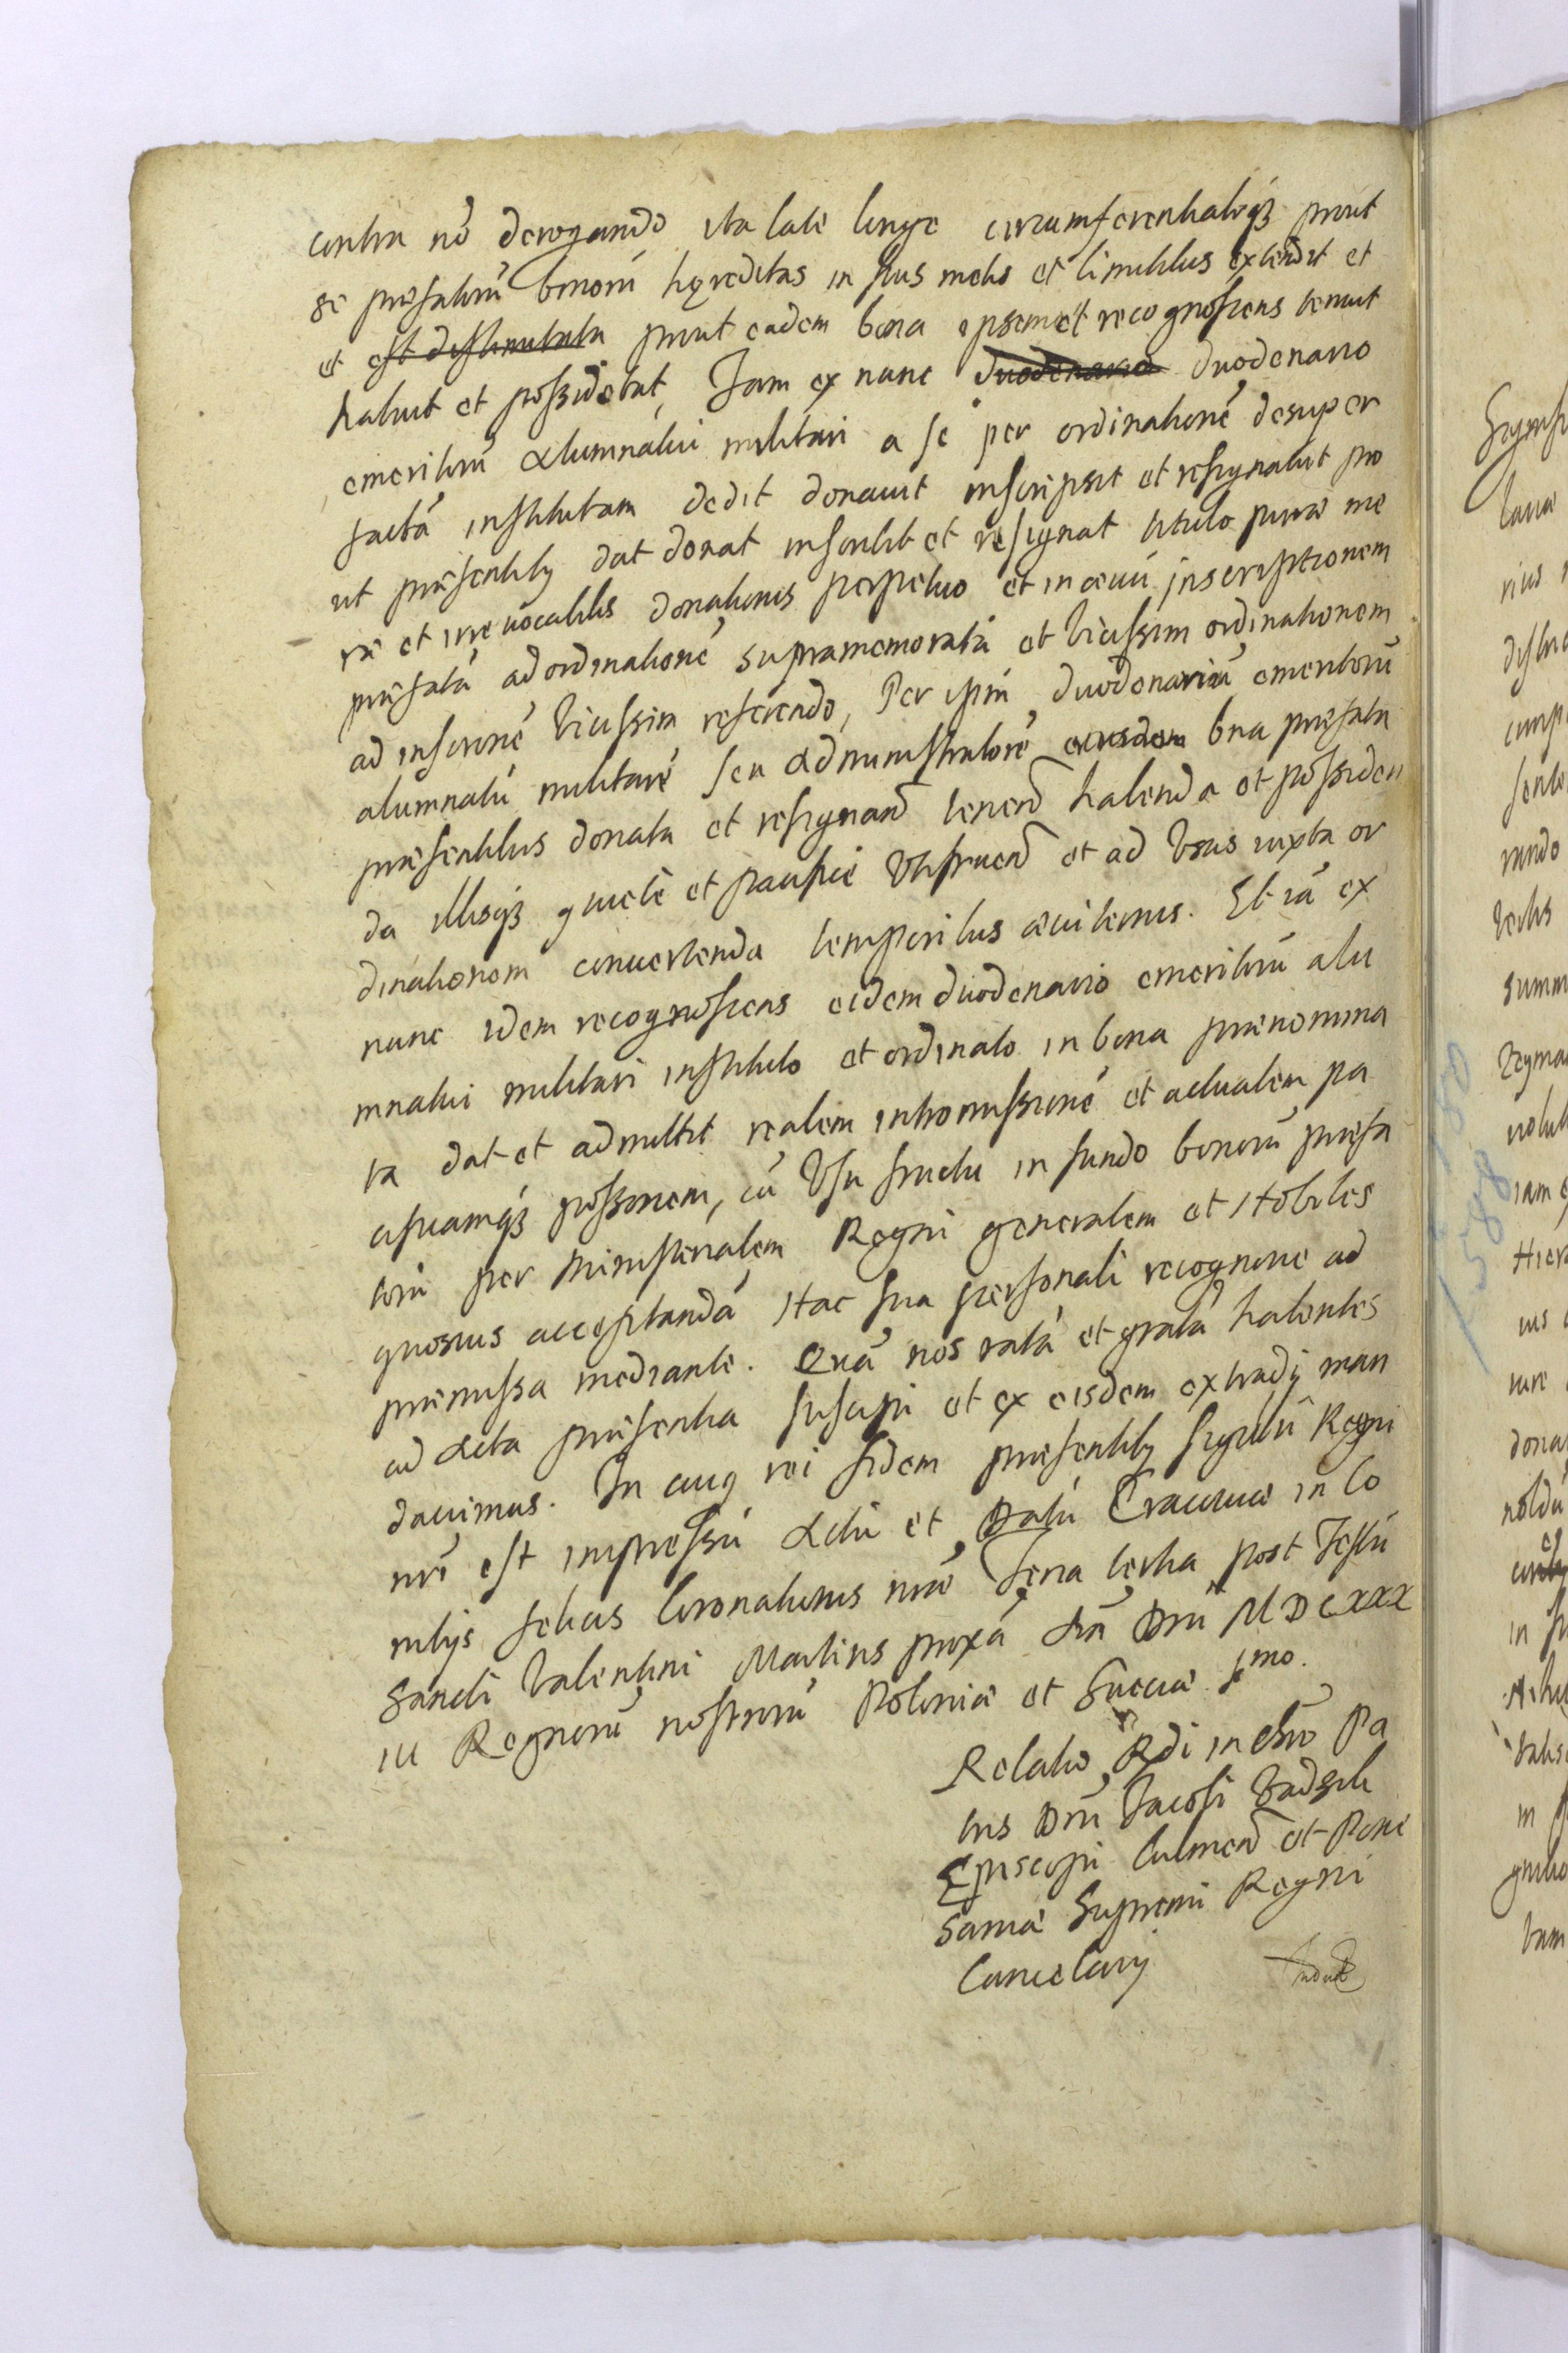 contra nō derogando ita late longe circumferentialiqꝫ prout
se præfatorū bonorū hæreditas in suis metis et limitibus extendit et
et est distimitata prout eadem bona ipsemet recognoscens tenuit
habuit et possidebat, Jam ex nunc duodenario duodenario
emeritorū Alumnatui militari a se per ordinationē desuper
factā institutam dedit donauit inscripsit et resignauit pro
ut præsentibꝫ dat donat inscribit et resignat titulo puræ me
ræ et irreuocabilis donationis perpetuo et in æuū inscriptionem
præfatā ad ordinationē supramemoratā et vicissim ordinationem
ad inscronē vicissim referendo, Per ipsū duodenariū emeritorū
alumnatū militarē seu Administratorē eiusdem bna præfata
præsentibus donata et resignand tenend habenda et possiden
da illisqꝫ quiete et pacifice Utifruend et ad Usus iuxta or
dinationem conuertenda temporibus æuiternis. Et iā ex
nunc idem recognoscens eidem duodenario emeritorū alu
mnatui militari instituto et ordinato in bona prænomina
ta dat et admittit realem intromissionē et actualem pa
cificamqꝫ possonem, cū Usu fructu in fundo bonorū præfa
torū per Ministerialem Regni generalem et Nobiles
quosuis acceptandā Hac sua personali recognone ad
præmissa mediante. Quā nos ratā et gratā habentes
ad Acta præsentia suscipi et ex eisdem extradi man
dauimus. In cuiꝰ rei fidem præsentibꝫ sigillū Regni
nrī est impressū Actū et Datū Cracouiæ in Co
mitijs felicis Coronationis nræ Feria tertia post Festū
Sancti Valentini Martiris proxā Añ Dnī M D C XXX
III Regnorū nostrorū Poloniæ et Sueciæ 1mo.
Relatio Rdi in Chrō Pa
tris Dnī Jacobi Zadzik
Episcopi Culmen et Pome
saniæ Supremi Regni
Cancelarij